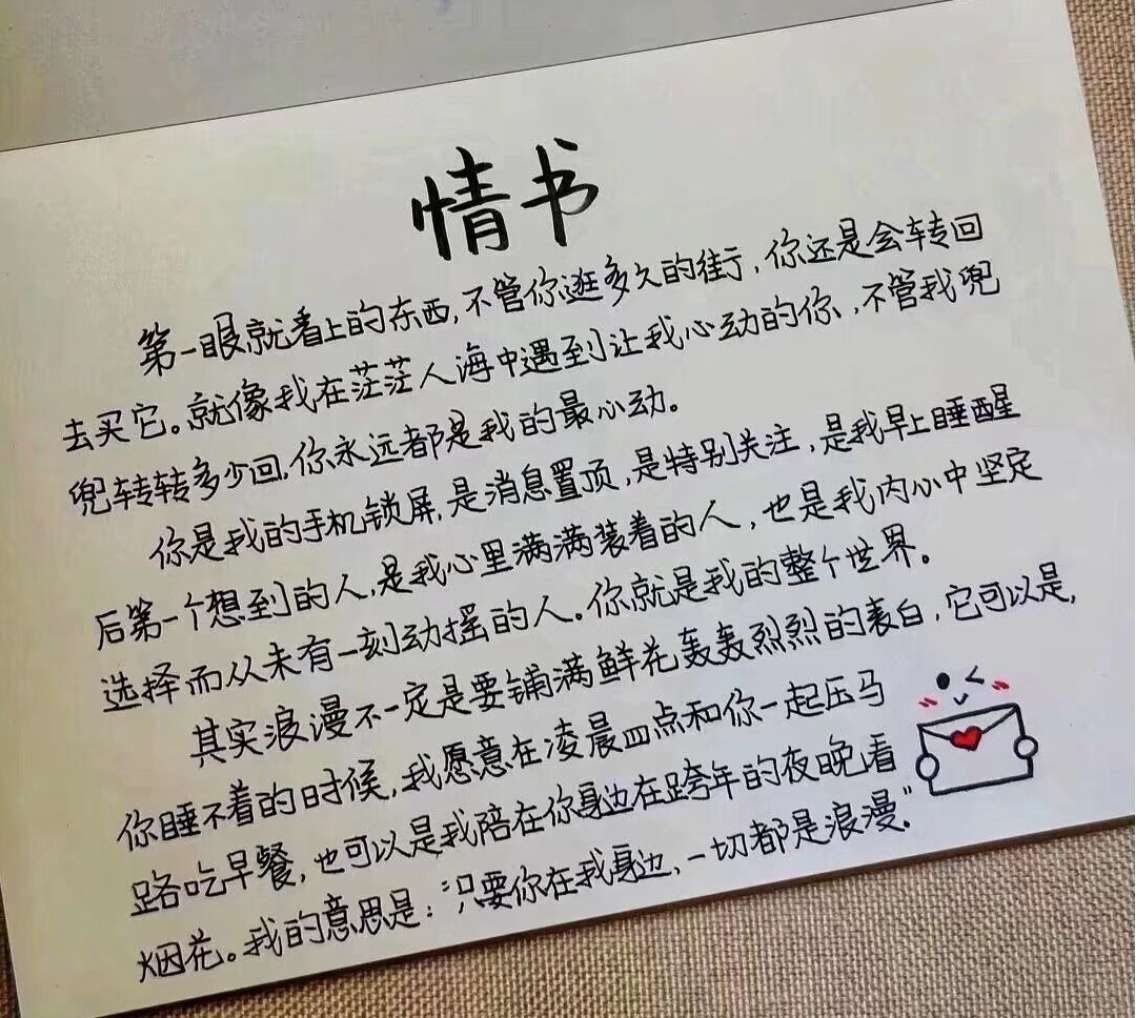 情书
第一眼就看上的东西,不管你逛多久的街,你还是会转回
去买它。就像我在茫茫人海中遇到让我心动的你,不管我兜
兜转转多少回,你永远都是我的最心动。
你是我的手机锁屏,是消息置顶,是特别关注,是我早上睡醒
后第一个想到的人,是我心里满满装着的人,也是我内心中坚定
选择而从未有一刻动摇的人。你就是我的整个世界。
其实浪漫不一定是要铺满鲜花轰轰烈烈的表白,它可以是,
你睡不着的时候,我愿意在凌晨四点和你一起压马
路吃早餐,也可以是我陪在你身边在跨年的夜晚看
烟花。我的意思是:只要你在我身边,一切都是浪漫."